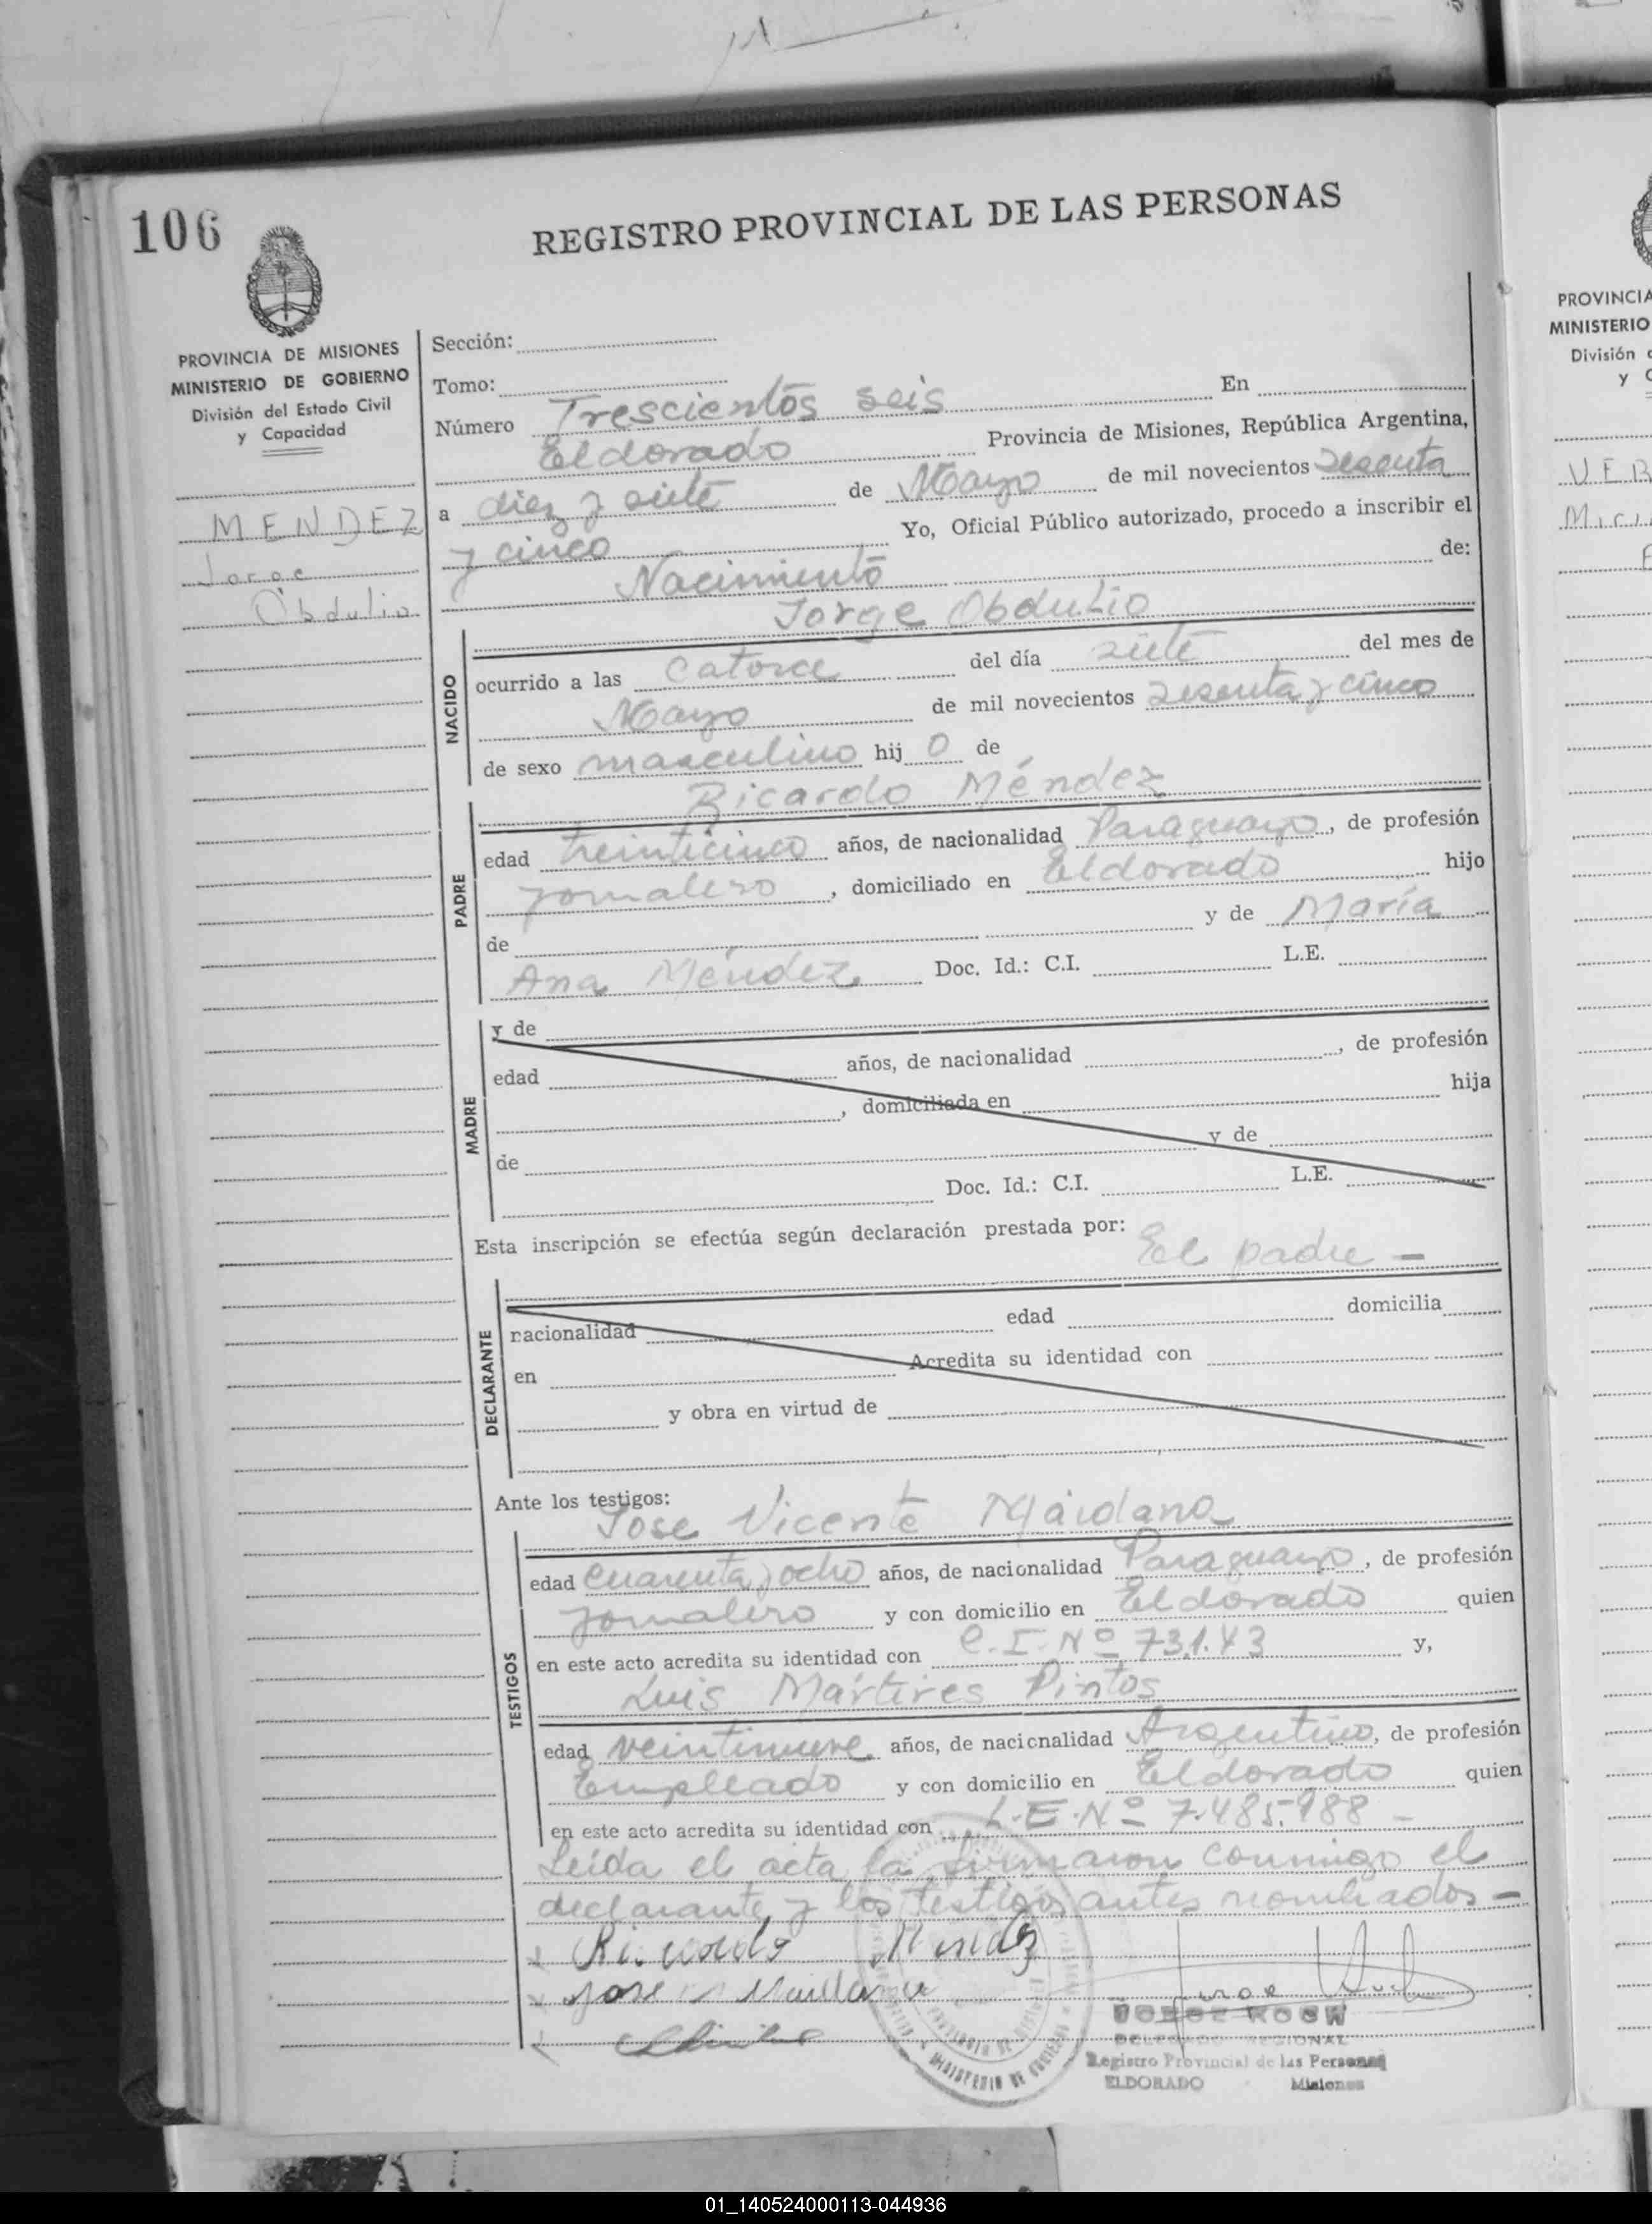 106
REGISTRO PROVINCIAL DE LAS PERSONAS
PROVINCIA DE MISIONES
MINISTERIO DE GOBIERNO
División del Estado Civil
y Capacidad
MENDEZ
Jorge
Obdulio
Sección:
Tomo:
Número Trescientos seis En
Eldorado Provincia de Misiones, República Argentina,
a diez y siete de Mayo de mil novecientos sesenta
y cinco Yo, Oficial Público autorizado, procedo a inscribir el
Nacimiento de:
Jorge Obdulio
NACIDO
ocurrido a las catorce del día siete del mes de
Mayo de mil novecientos sesenta y cinco
de sexo masculino hij o de
Ricardo Méndez
PADRE
edad treinticinco años, de nacionalidad Paraguayo, de profesión
jornalero, domiciliado en Eldorado hijo
de y de María
Ana Méndez Doc. Id.: C.I. L.E.
MADRE
y de
edad años, de nacionalidad , de profesión
, domiciliada en hija
de y de
Doc. Id.: C.I. L.E.
Esta inscripción se efectúa según declaración prestada por: El padre -
DECLARANTE
nacionalidad edad domicilia
en Acredita su identidad con
y obra en virtud de
Ante los testigos:
Jose Vicente Maidana
TESTIGOS
edad cuarenta y ocho años, de nacionalidad Paraguayo, de profesión
jornalero y con domicilio en Eldorado quien
en este acto acredita su identidad con C.I. Nº 73.143 y,
Luis Mártires Pintos
edad veintinueve años, de nacionalidad Argentino, de profesión
Empleado y con domicilio en Eldorado quien
en este acto acredita su identidad con L.E. Nº 7.485.988 -
Leída el acta la firmaron conmigo el
declarante y los testigos antes nombrados -
Ricardo Mendez
Jose Maidana
JORGE KOCH
DELEGADO REGIONAL
Registro Provincial de las Personas
ELDORADO Misiones
MINISTERIO DE GOBIERNO
PROVINCIA
MINISTERIO
División
y
VEB
01_140524000113-044936